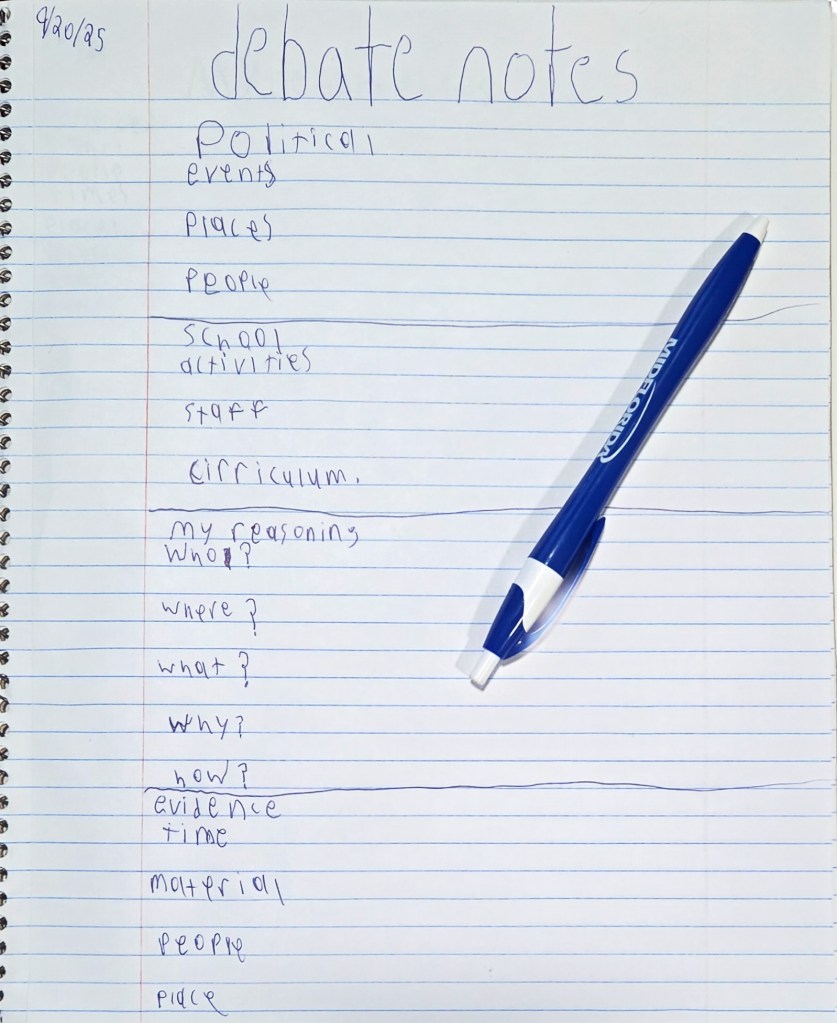 9/20/25
debate notes
Political
events
places
people
school
activities
staff
cirriculum.
my reasoning
who?
where?
what?
why?
how?
evidence
time
material
people
place
MIDFLORIDA